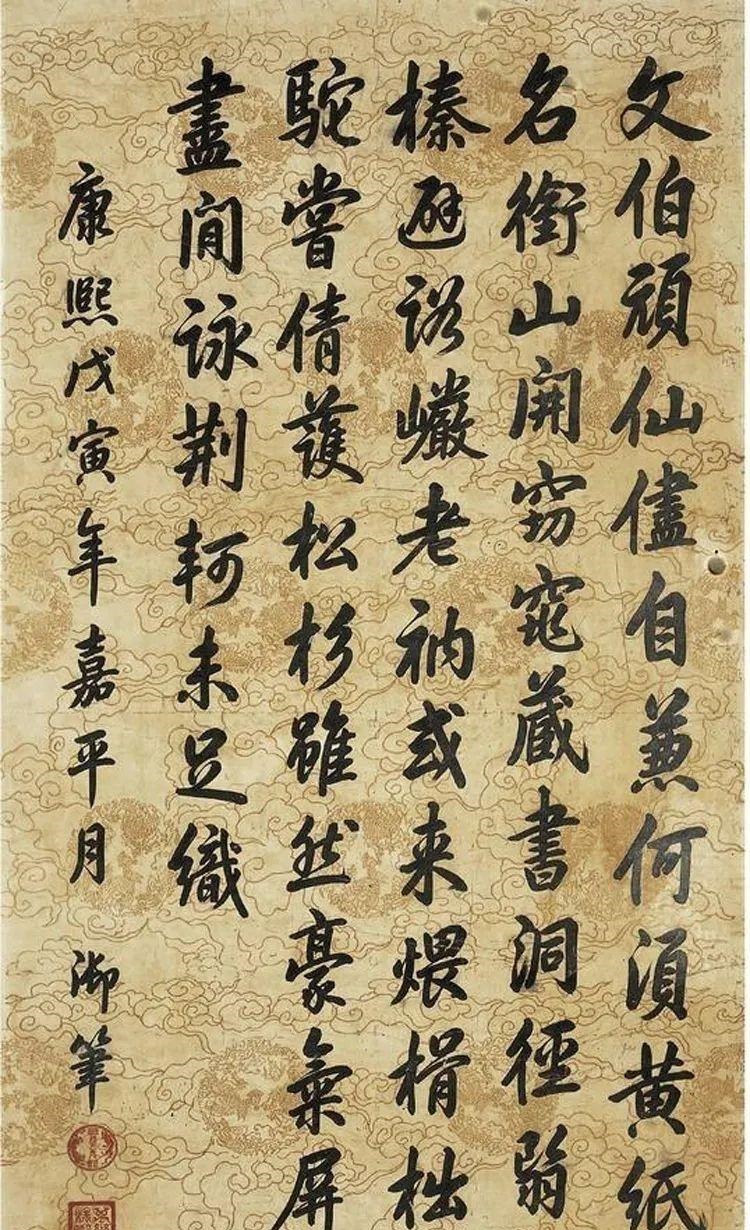 文伯頑仙儘自兼何須黄紙
名銜山開窈窕蔵書洞徑翦
榛避巖老衲或来煨榾柮
駝嘗倩護松杉雖然豪氣屏
盡閒詠荆軻未足纖
康熙戊寅年嘉平月 御筆